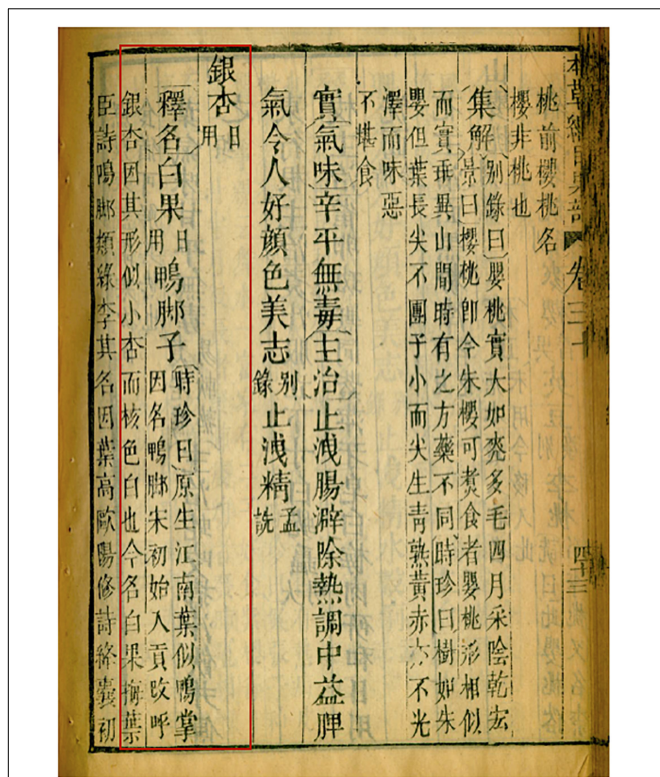 本草綱目果部 卷三十 四十三
桃前櫻桃名
櫻非桃也
集解 別錄曰嬰桃實大如麥多毛四月采陰乾宏
景曰櫻桃卽今朱櫻可煑食者嬰桃形相似
而實乖異山間時有之方藥不同時珍曰樹如朱
嬰但葉長尖不團子小而尖生靑熟黃赤亦不光
澤而味惡
不堪食
實氣味辛平無毒主治止洩腸澼除熱調中益脾
氣令人好顔色美志 別錄 止洩精 孟詵
銀杏 日用
釋名白果 日用 鴨脚子 時珍曰原生江南葉似鴨掌
因名鴨脚宋初始入貢改呼
銀杏因其形似小杏而核色白也今名白果梅葉
臣詩鴨脚類綠李其名因葉高歐陽修詩絳囊初